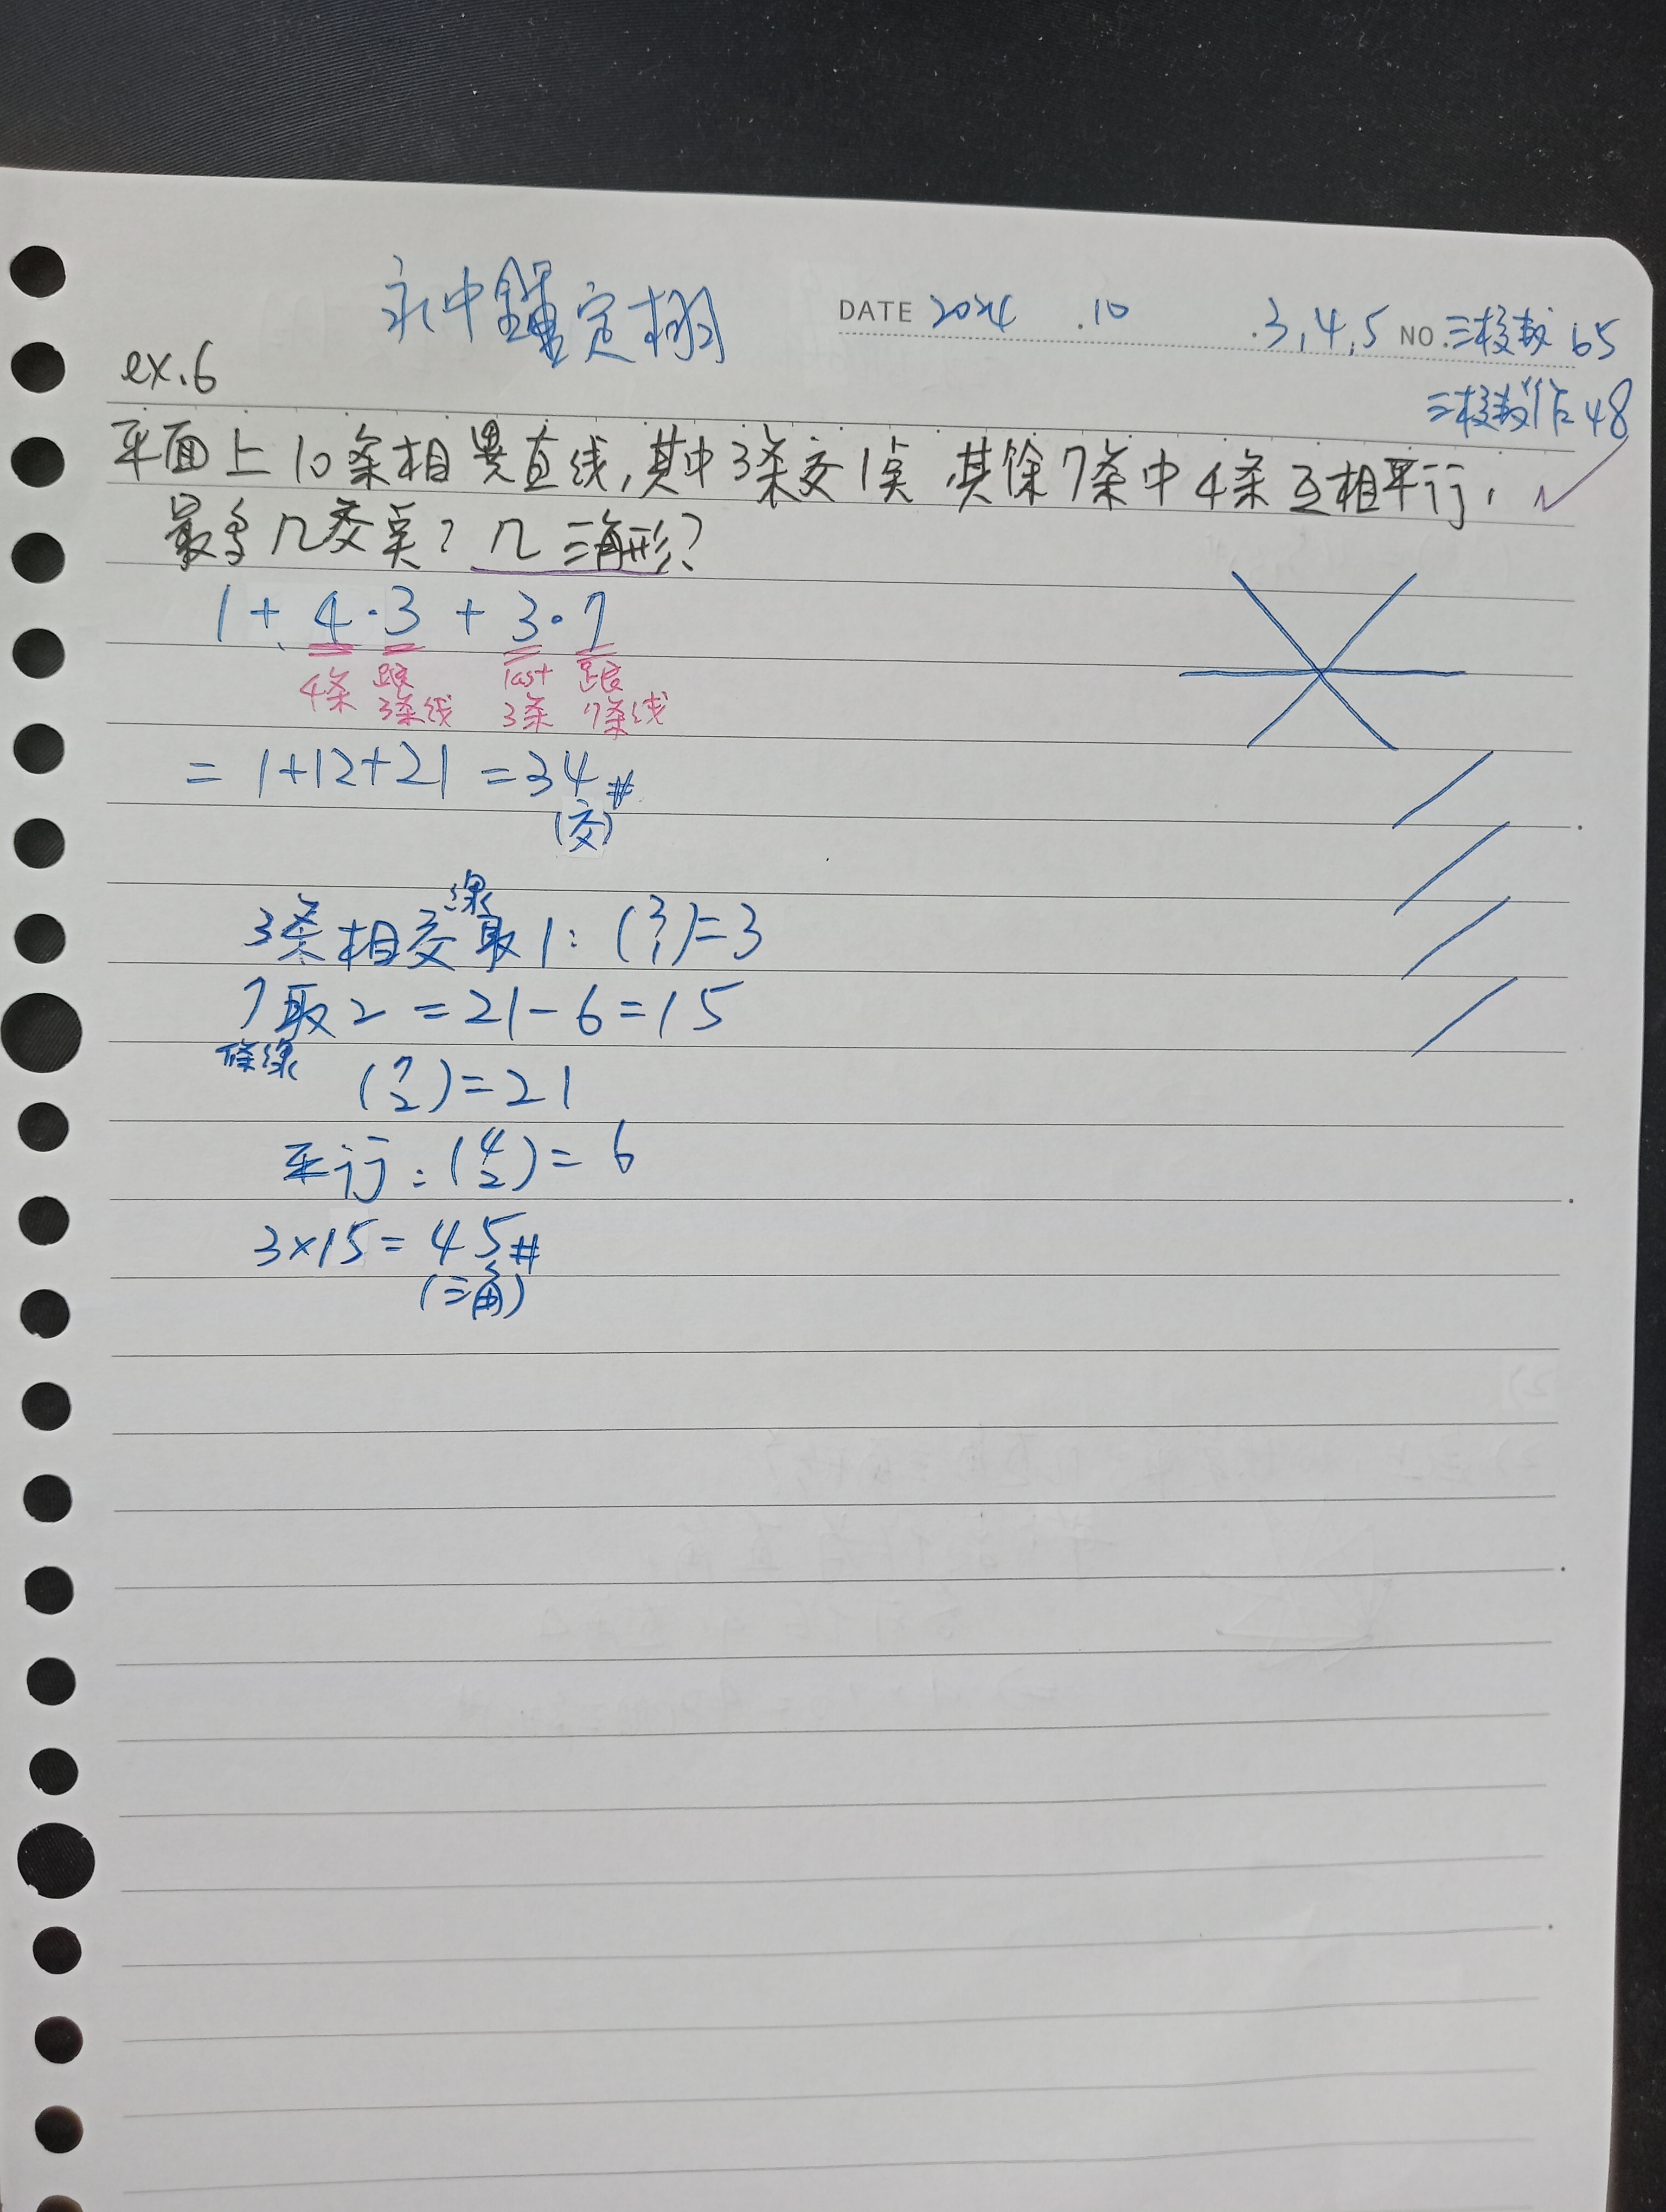 永中鐘定栩
DATE 2024 .10 .3,4,5 NO.三校数 65
三校教作 48
ex.6
平面上10条相異直线,其中3条交1点,其馀7条中4条互相平行,
最多几交点? 几三角形?
1 + 4·3 + 3·7
4条 跟3条线 last 3条 跟7条线
= 1+12+21 = 34#
(交)
3条相交線取1: (3 1)=3
7條線取2 = 21-6=15
(7 2)=21
平行:(4 2)= 6
3×15= 45#
(三角)